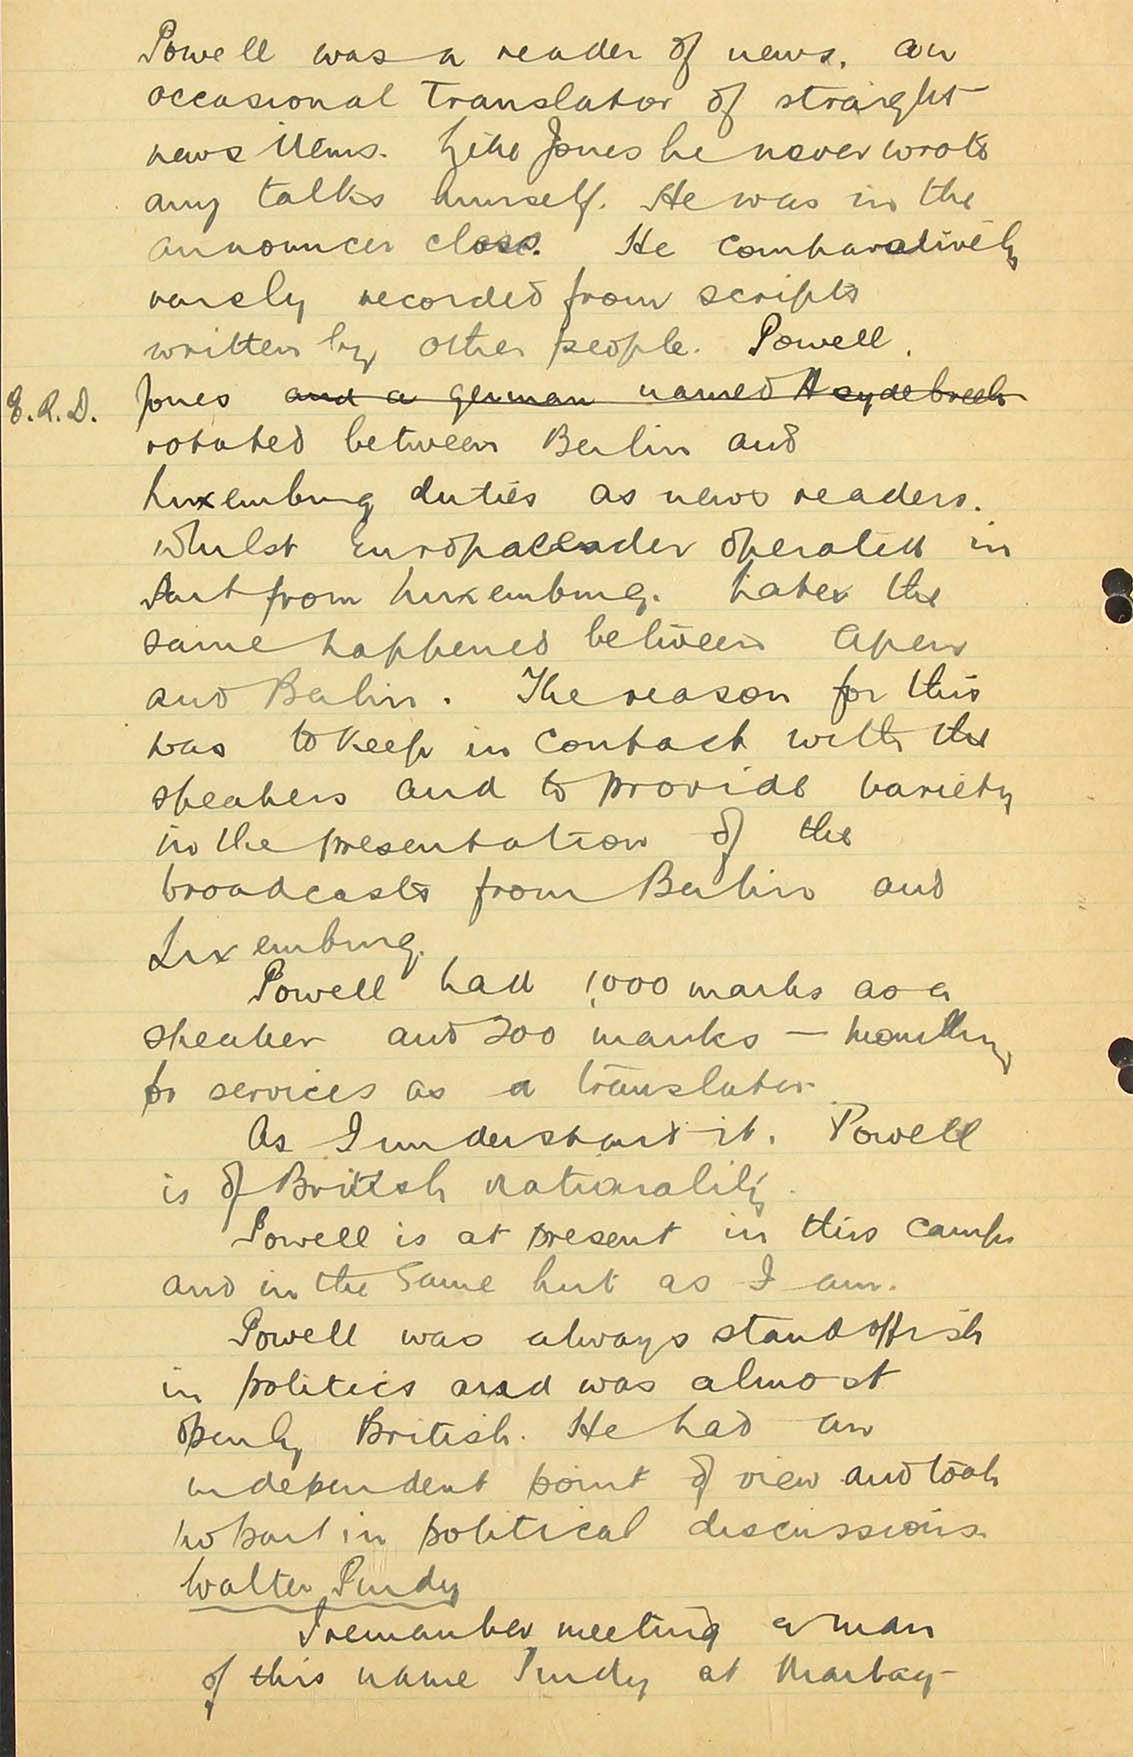 Powell was a reader of news, an
occasional translator of straight
news items. Like Jones he never wrote
any talks himself. He was in the
announcer class. He comparatively
rarely recorded from scripts
written by other people. Powell,
E.R.D. Jones and a german named Heydebreck
rotated between Berlin and
Luxemburg duties as news readers.
Whilst Europasender operated in
part from Luxemburg. Later the
same happened between Apen
and Berlin. The reason for this
was to keep in contact with the
speakers and to provide variety
in the presentation of the
broadcasts from Berlin and
Luxemburg.
Powell had 1,000 marks as a
speaker and 200 marks — monthly
for services as a translator.
As I understand it, Powell
is of British nationality.
Powell is at present in this camp
and in the same hut as I am.
Powell was always standoffish
in politics and was almost
openly British. He had an
independent point of view and took
no part in political discussions.
Walter Purdy
I remember meeting a man
of this name Purdy at